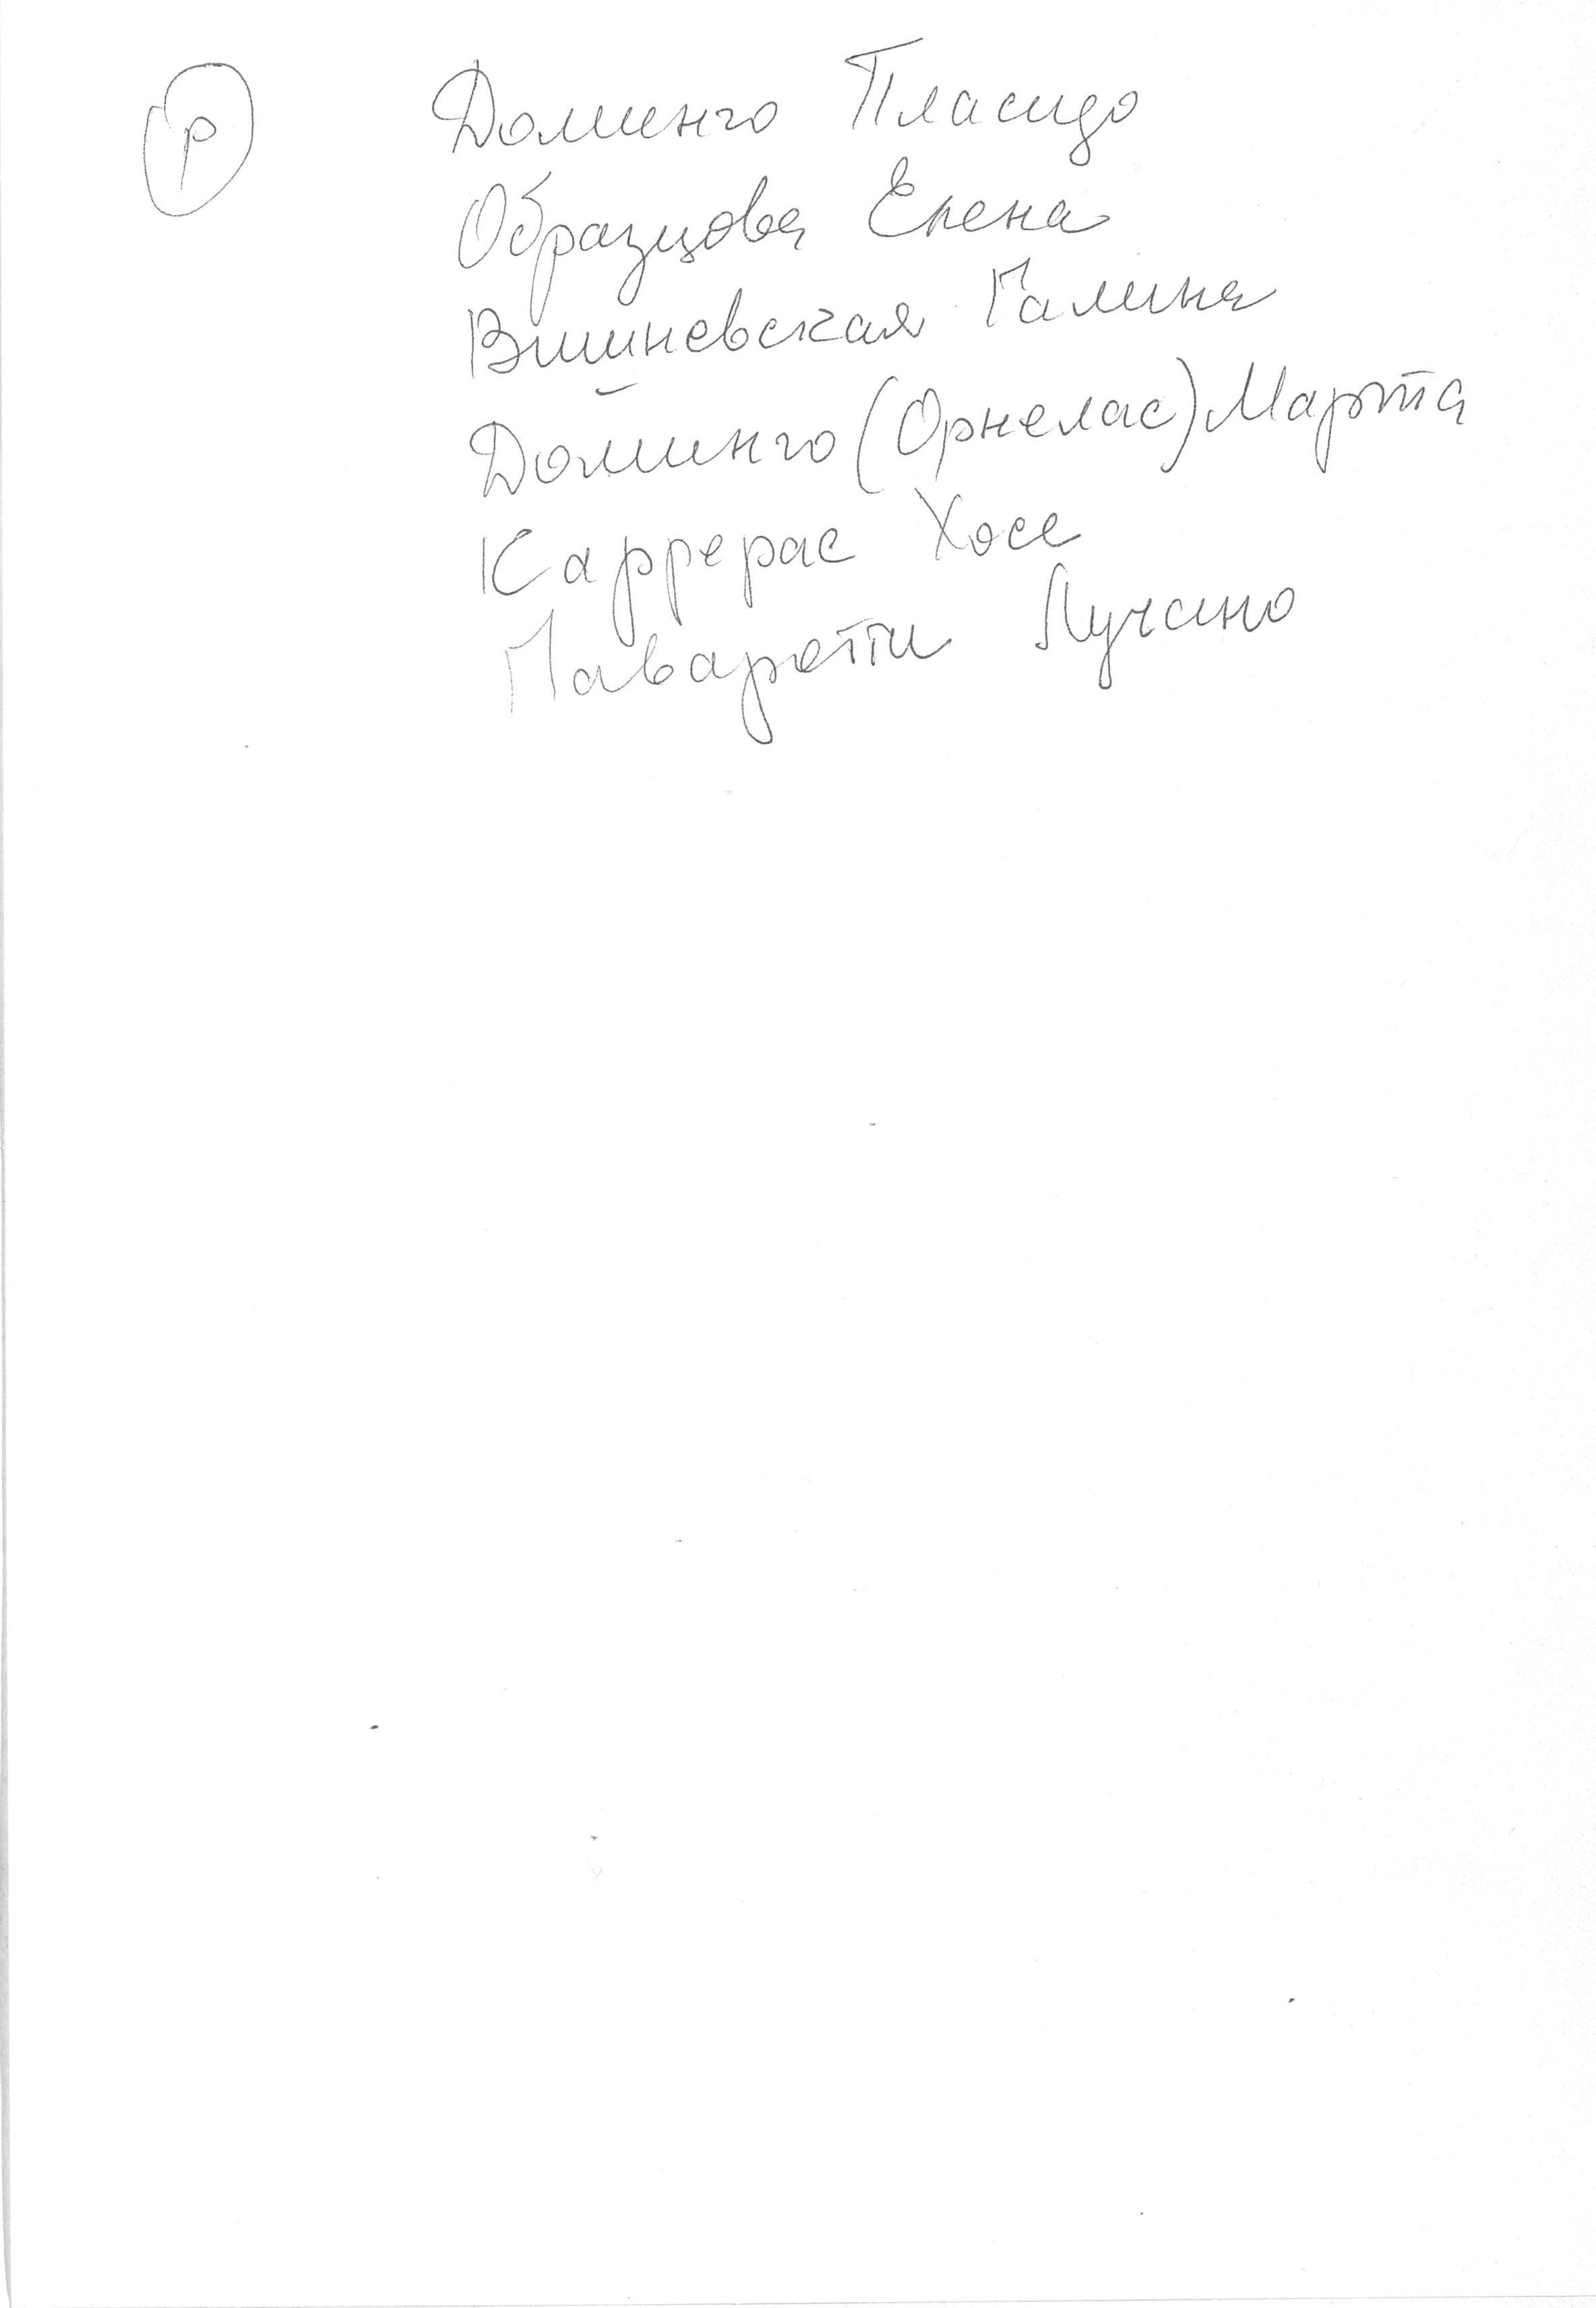 р Доминго Пласидо
Образцова Елена
Вишневская Галина
Доминго (Орнелас) Марта
Каррерас Хосе
Паваротти Лучано